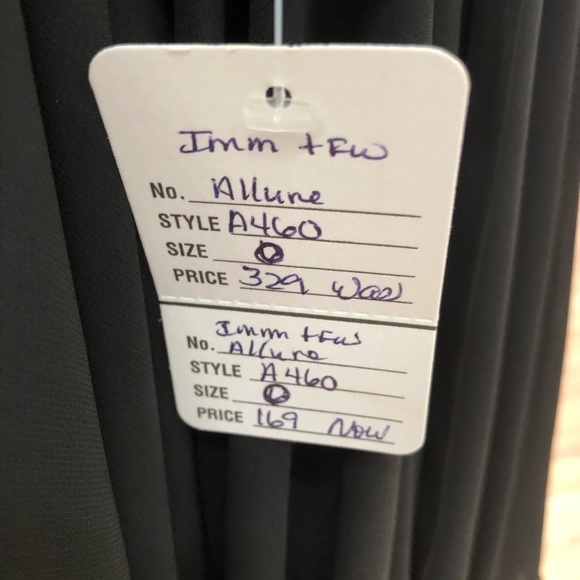 Imm + FW
No. Allure
STYLE A460
SIZE 0
PRICE 329 Was
Imm + FW
No. Allure
STYLE A460
SIZE 0
PRICE 169 Now